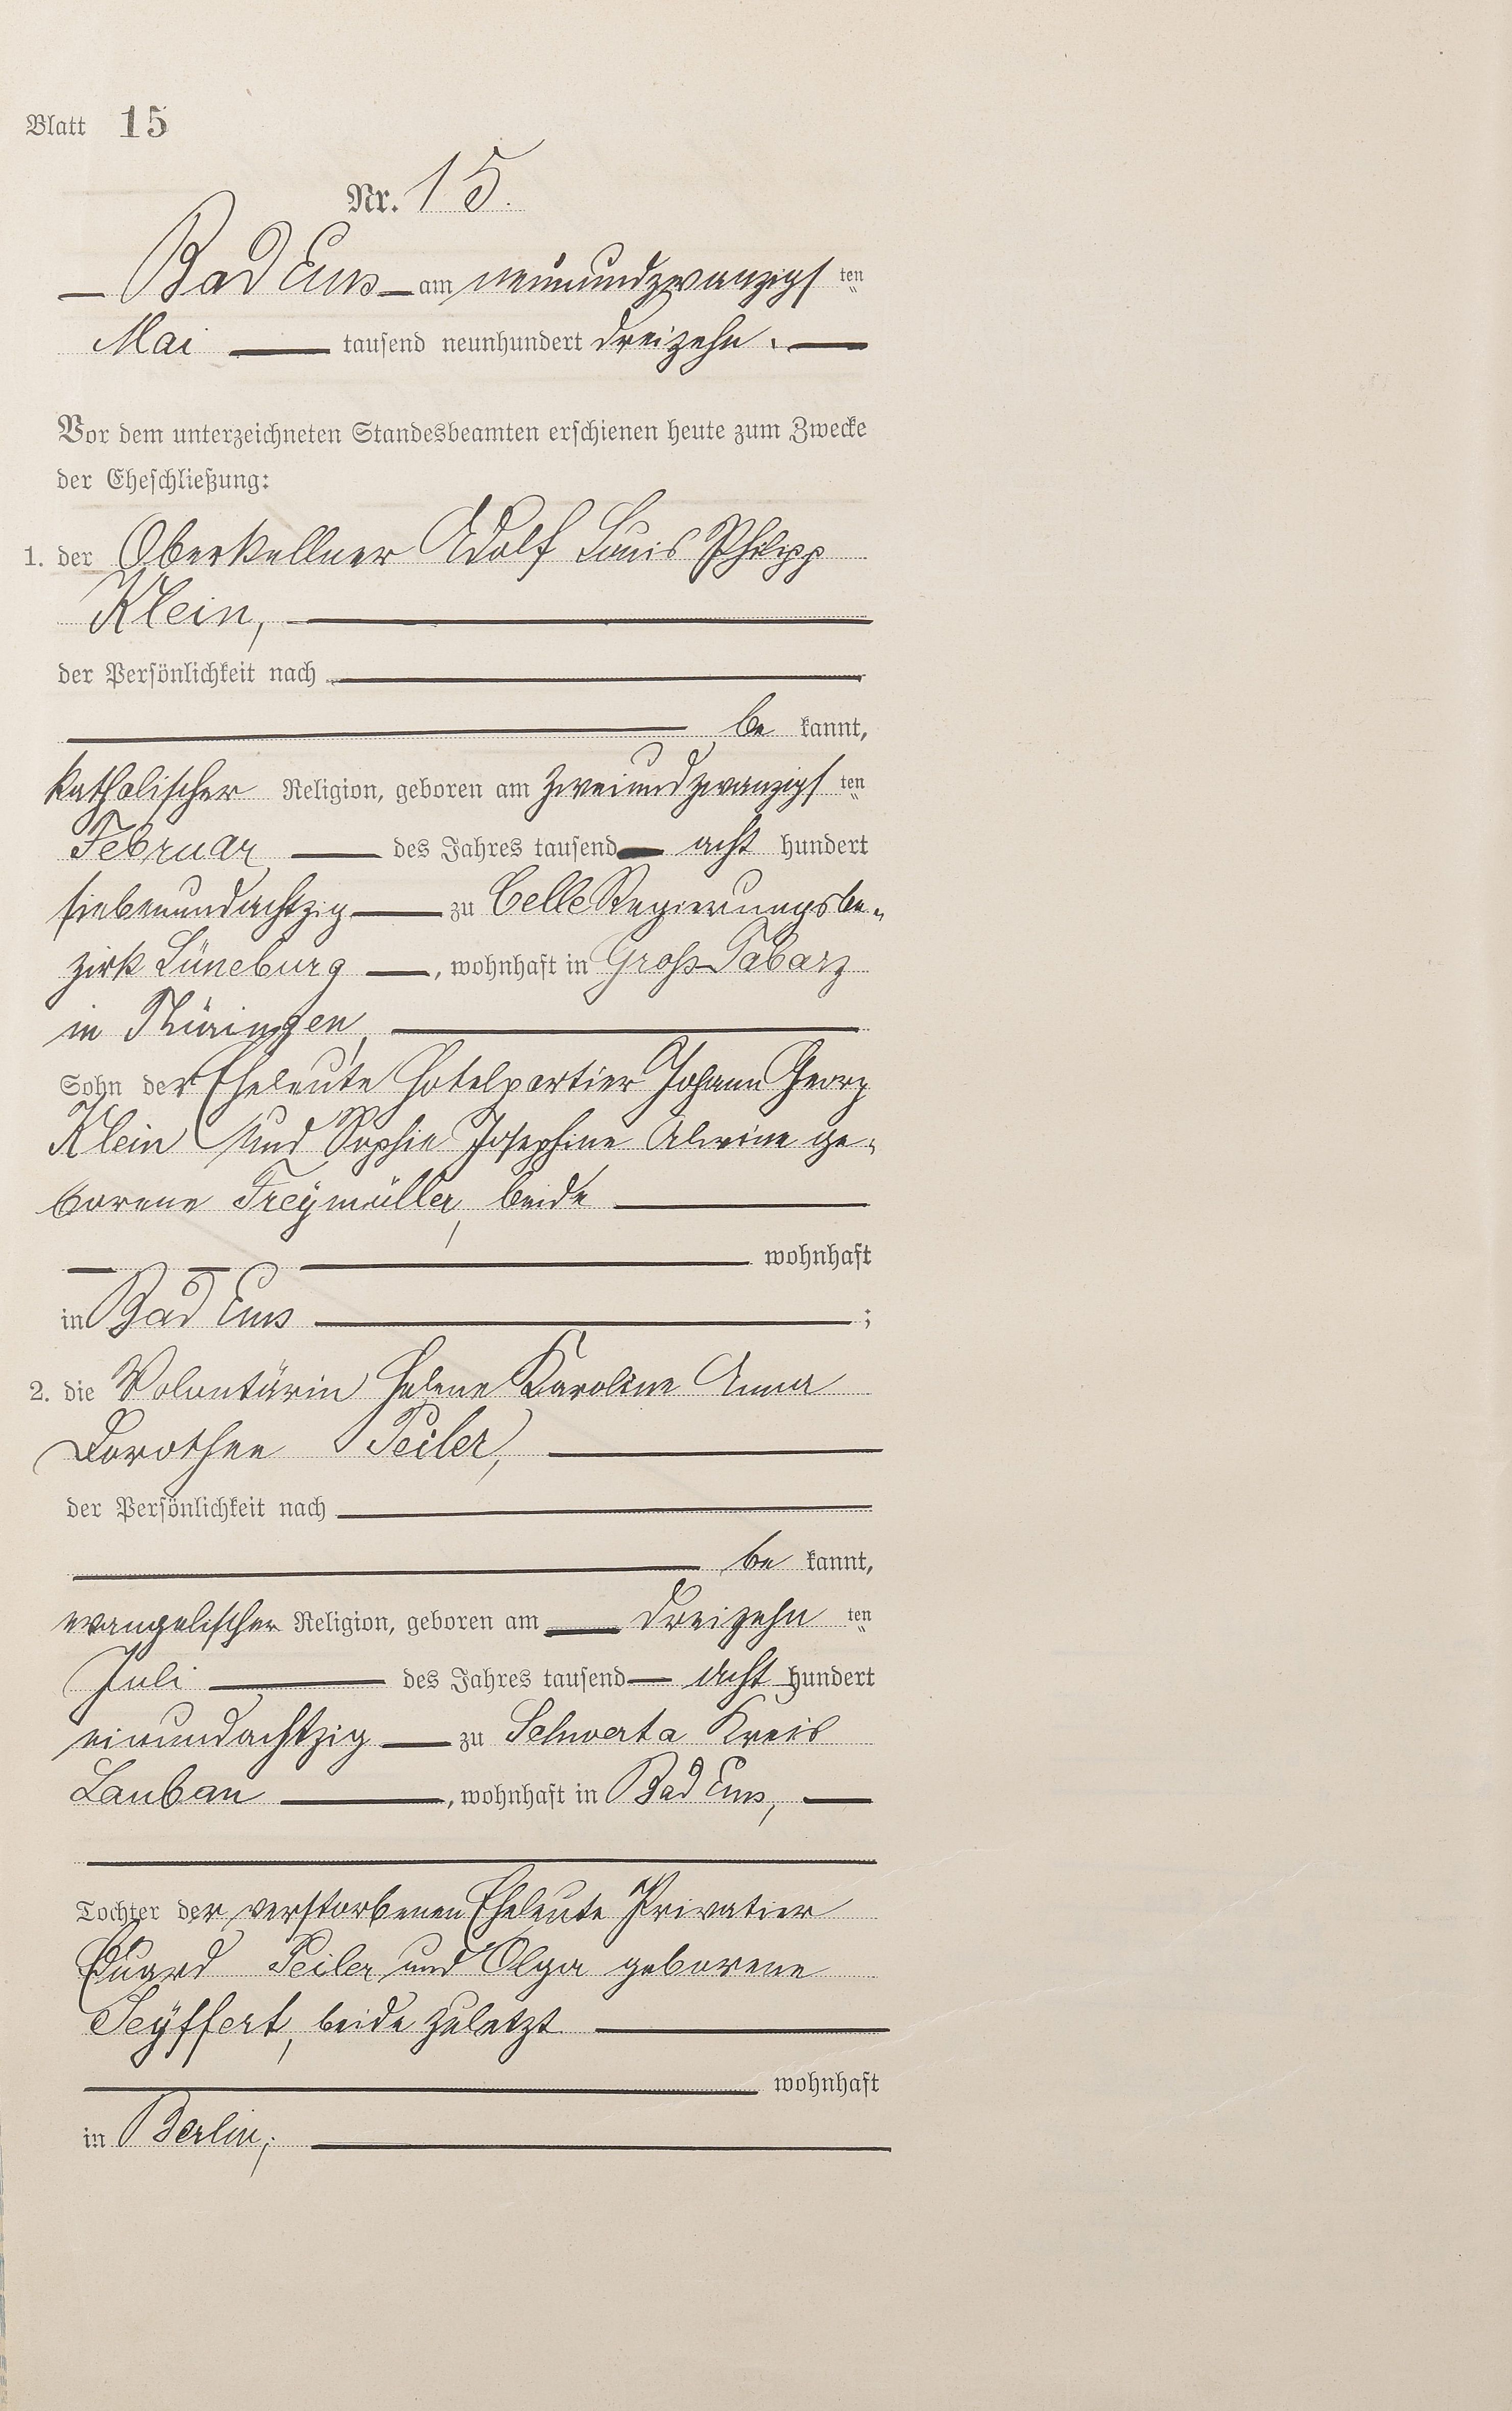 Blatt 15
Nr. 15.
Bad Ems am neunundzwanzigsten
Mai tausend neunhundert dreizehn.
Vor dem unterzeichneten Standesbeamten erschienen heute zum Zwecke
der Eheschließung:
1. der Oberkellner Adolf Louis Philipp
Klein,
der Persönlichkeit nach
be kannt,
katholischer Religion, geboren am zweiundzwanzigsten
Februar des Jahres tausend acht hundert
siebenundachtzig zu Celle Regierungsbe-
zirk Lüneburg, wohnhaft in Groß-Tabarz
in Thüringen,
Sohn der Eheleute Hotelportier Johann Georg
Klein und Sophie Josephine Alwine ge-
borene Freymüller, beide
wohnhaft
in Bad Ems ;
2. die Volontärin Helene Karoline Anna
Dorothee Peiler,
der Persönlichkeit nach
be kannt,
evangelischer Religion, geboren am dreizehn ten
Juli des Jahres tausend acht hundert
einundachtzig zu Schwerta Kreis
Lauban, wohnhaft in Bad Ems,
Tochter der verstorbenen Eheleute Privatier
Eduard Peiler und Olga geborene
Seyffert, beide zuletzt
wohnhaft
in Berlin;